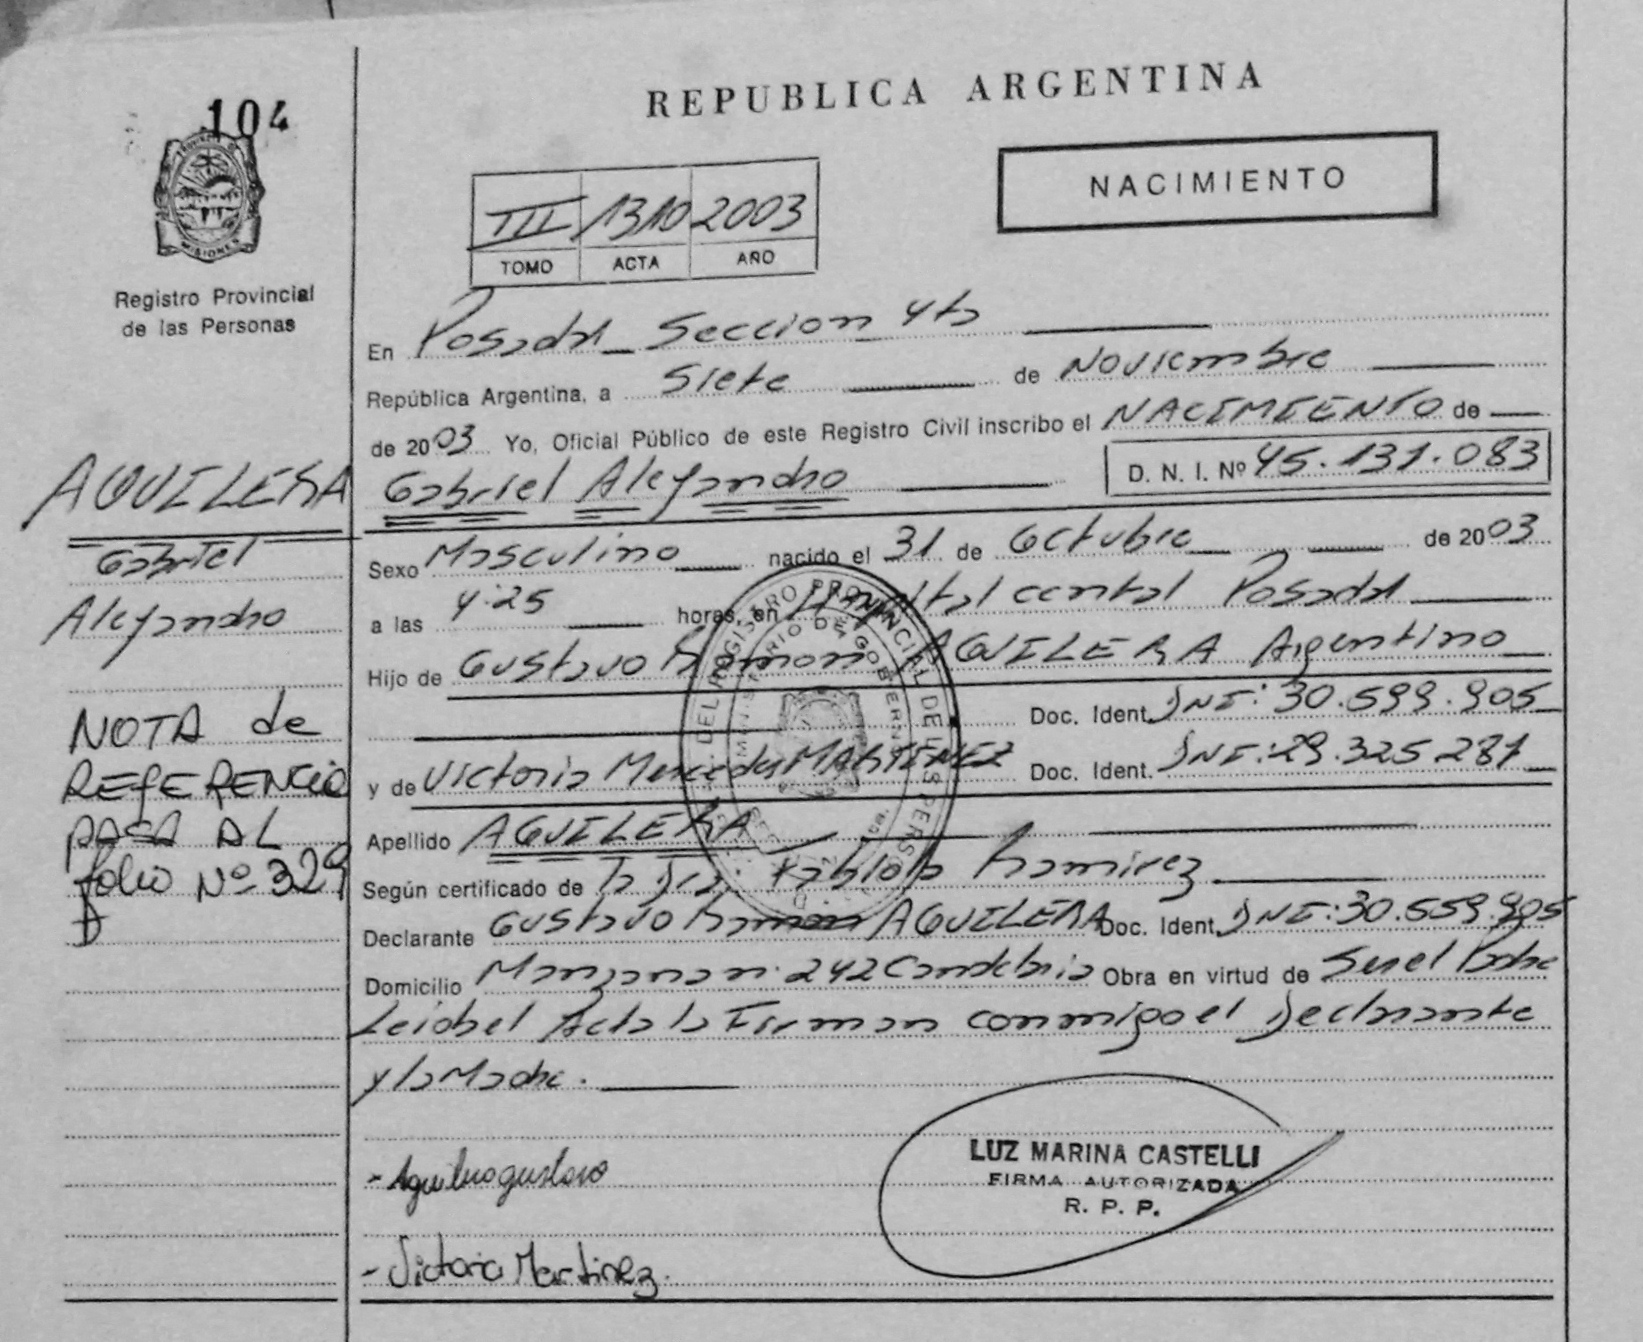 REPUBLICA ARGENTINA
104
NACIMIENTO
MISIONES
III 1310 2003
TOMO ACTA AÑO
Registro Provincial
de las Personas
En Posadas Seccion 4ta
República Argentina, a Siete de Noviembre
de 2003 Yo, Oficial Público de este Registro Civil inscribo el NACIMIENTO de
D. N. I. Nº 45.131.083
AGUILERA
Gabriel Alejandro
Gabriel
Alejandro
Sexo Masculino nacido el 31 de Octubre de 2003
a las 4:25 horas, en Hospital central Posadas
Hijo de Gustavo Ramon AGUILERA Argentino
Doc. Ident. DNI: 30.599.905
y de Victoria Mercedes MARTINEZ Doc. Ident. DNI: 29.325.287
NOTA de
REFERENCIA
PASA AL
folio Nº 329
Apellido AGUILERA
Según certificado de la Dra. Ramirez
Declarante Gustavo Ramon AGUILERA Doc. Ident. DNI: 30.559.905
Domicilio 242 Candelaria Obra en virtud de Ser el Padre
Leida el Acta la Firman conmigo el Declarante
y la Madre.
LUZ MARINA CASTELLI
FIRMA AUTORIZADA
R. P. P.
- Aguilera gustavo
- Victoria Martinez.